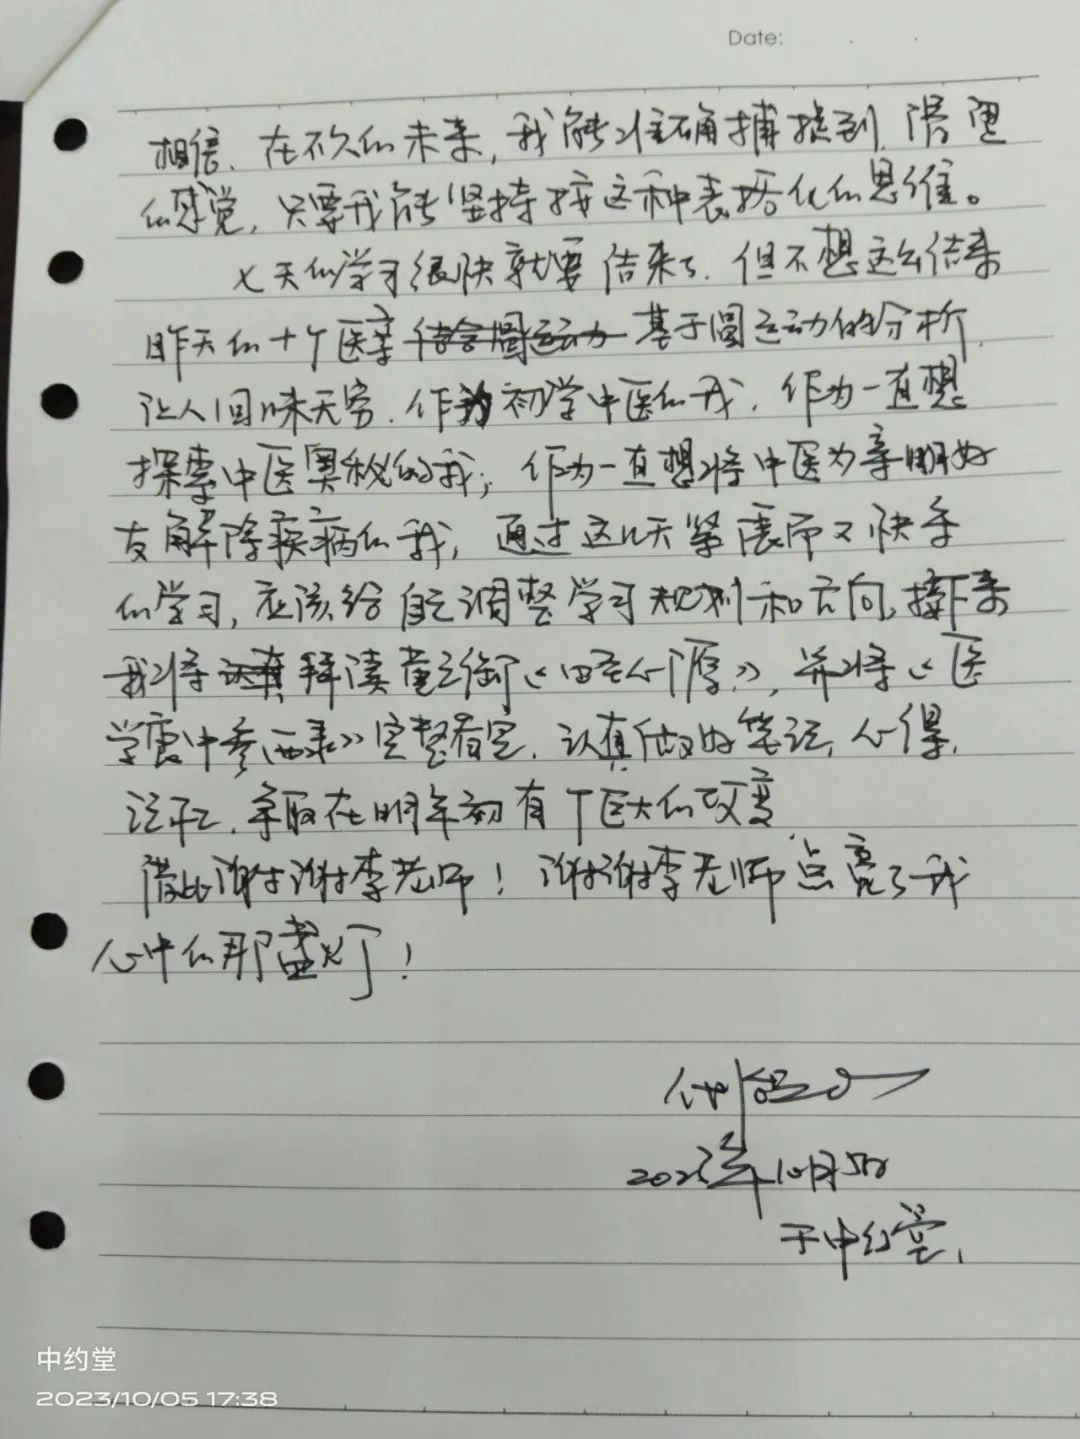 Date:
相信、在不久的未来，我能准确捕捉到
的感觉，只要我能坚持按这种表格化的思维。
七天的学习很快就要结束了、但不想这么结束
昨天的十个医案 结合圆运动 基于圆运动的分析，
让人回味无穷、作为初学中医的我、作为一直想
探索中医奥秘的我；作为一直想将中医为亲朋好
友解除疾病的我，通过这几天紧张而又快乐
的学习，应该给自己调整学习规划和方向，接下来
我将 认真 拜读黄元御《四圣心源》，并将《医
学衷中参西录》完整看完、认真做好笔记、心得、
注下、争取在明年初有个巨大的改变
借此谢谢李老师！谢谢李老师点亮了我
心中的那盏灯！
2023年10月5日
于中约堂、
中约堂
2023/10/05 17:38